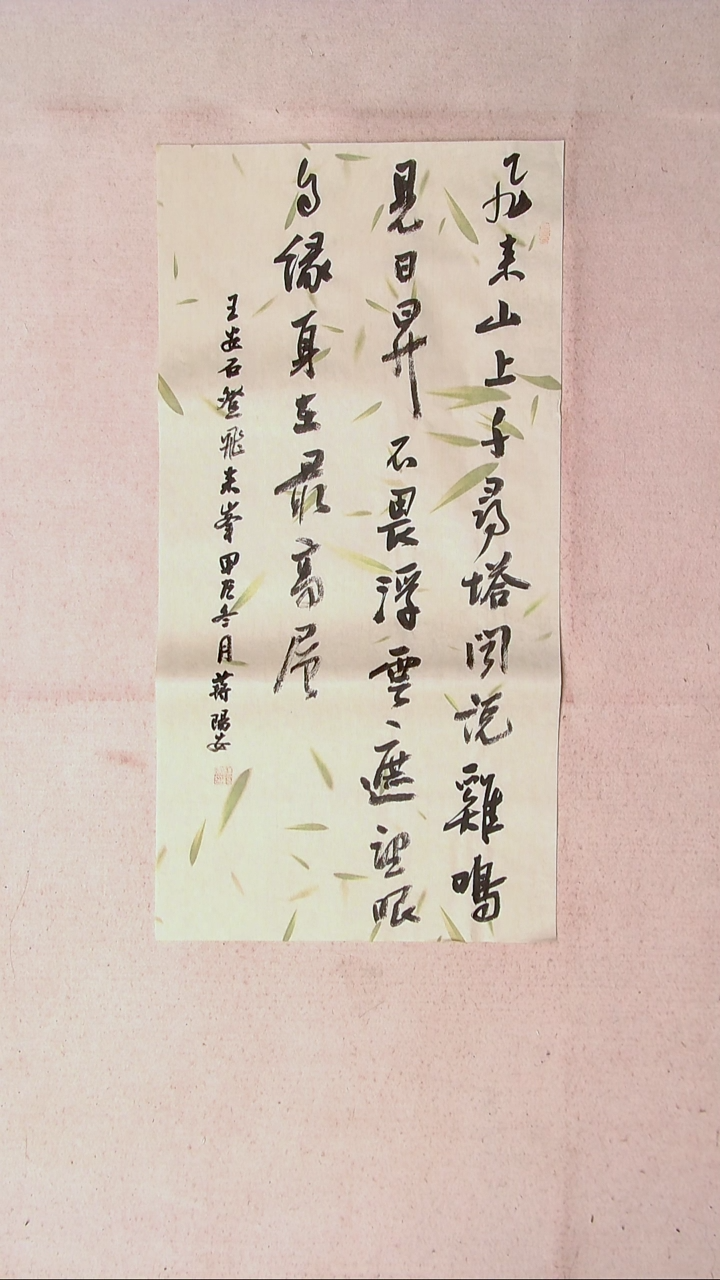 飛来山上千尋塔聞说雞鳴
見日昇不畏浮雲遮望眼
自缘身在最高层
王安石登飛来峯甲辰冬月蒋